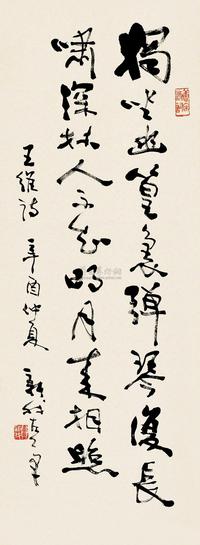 獨坐幽篁裏彈琴復長
嘯深林人不知明月來相照
王維詩 辛酉仲夏 新我左筆